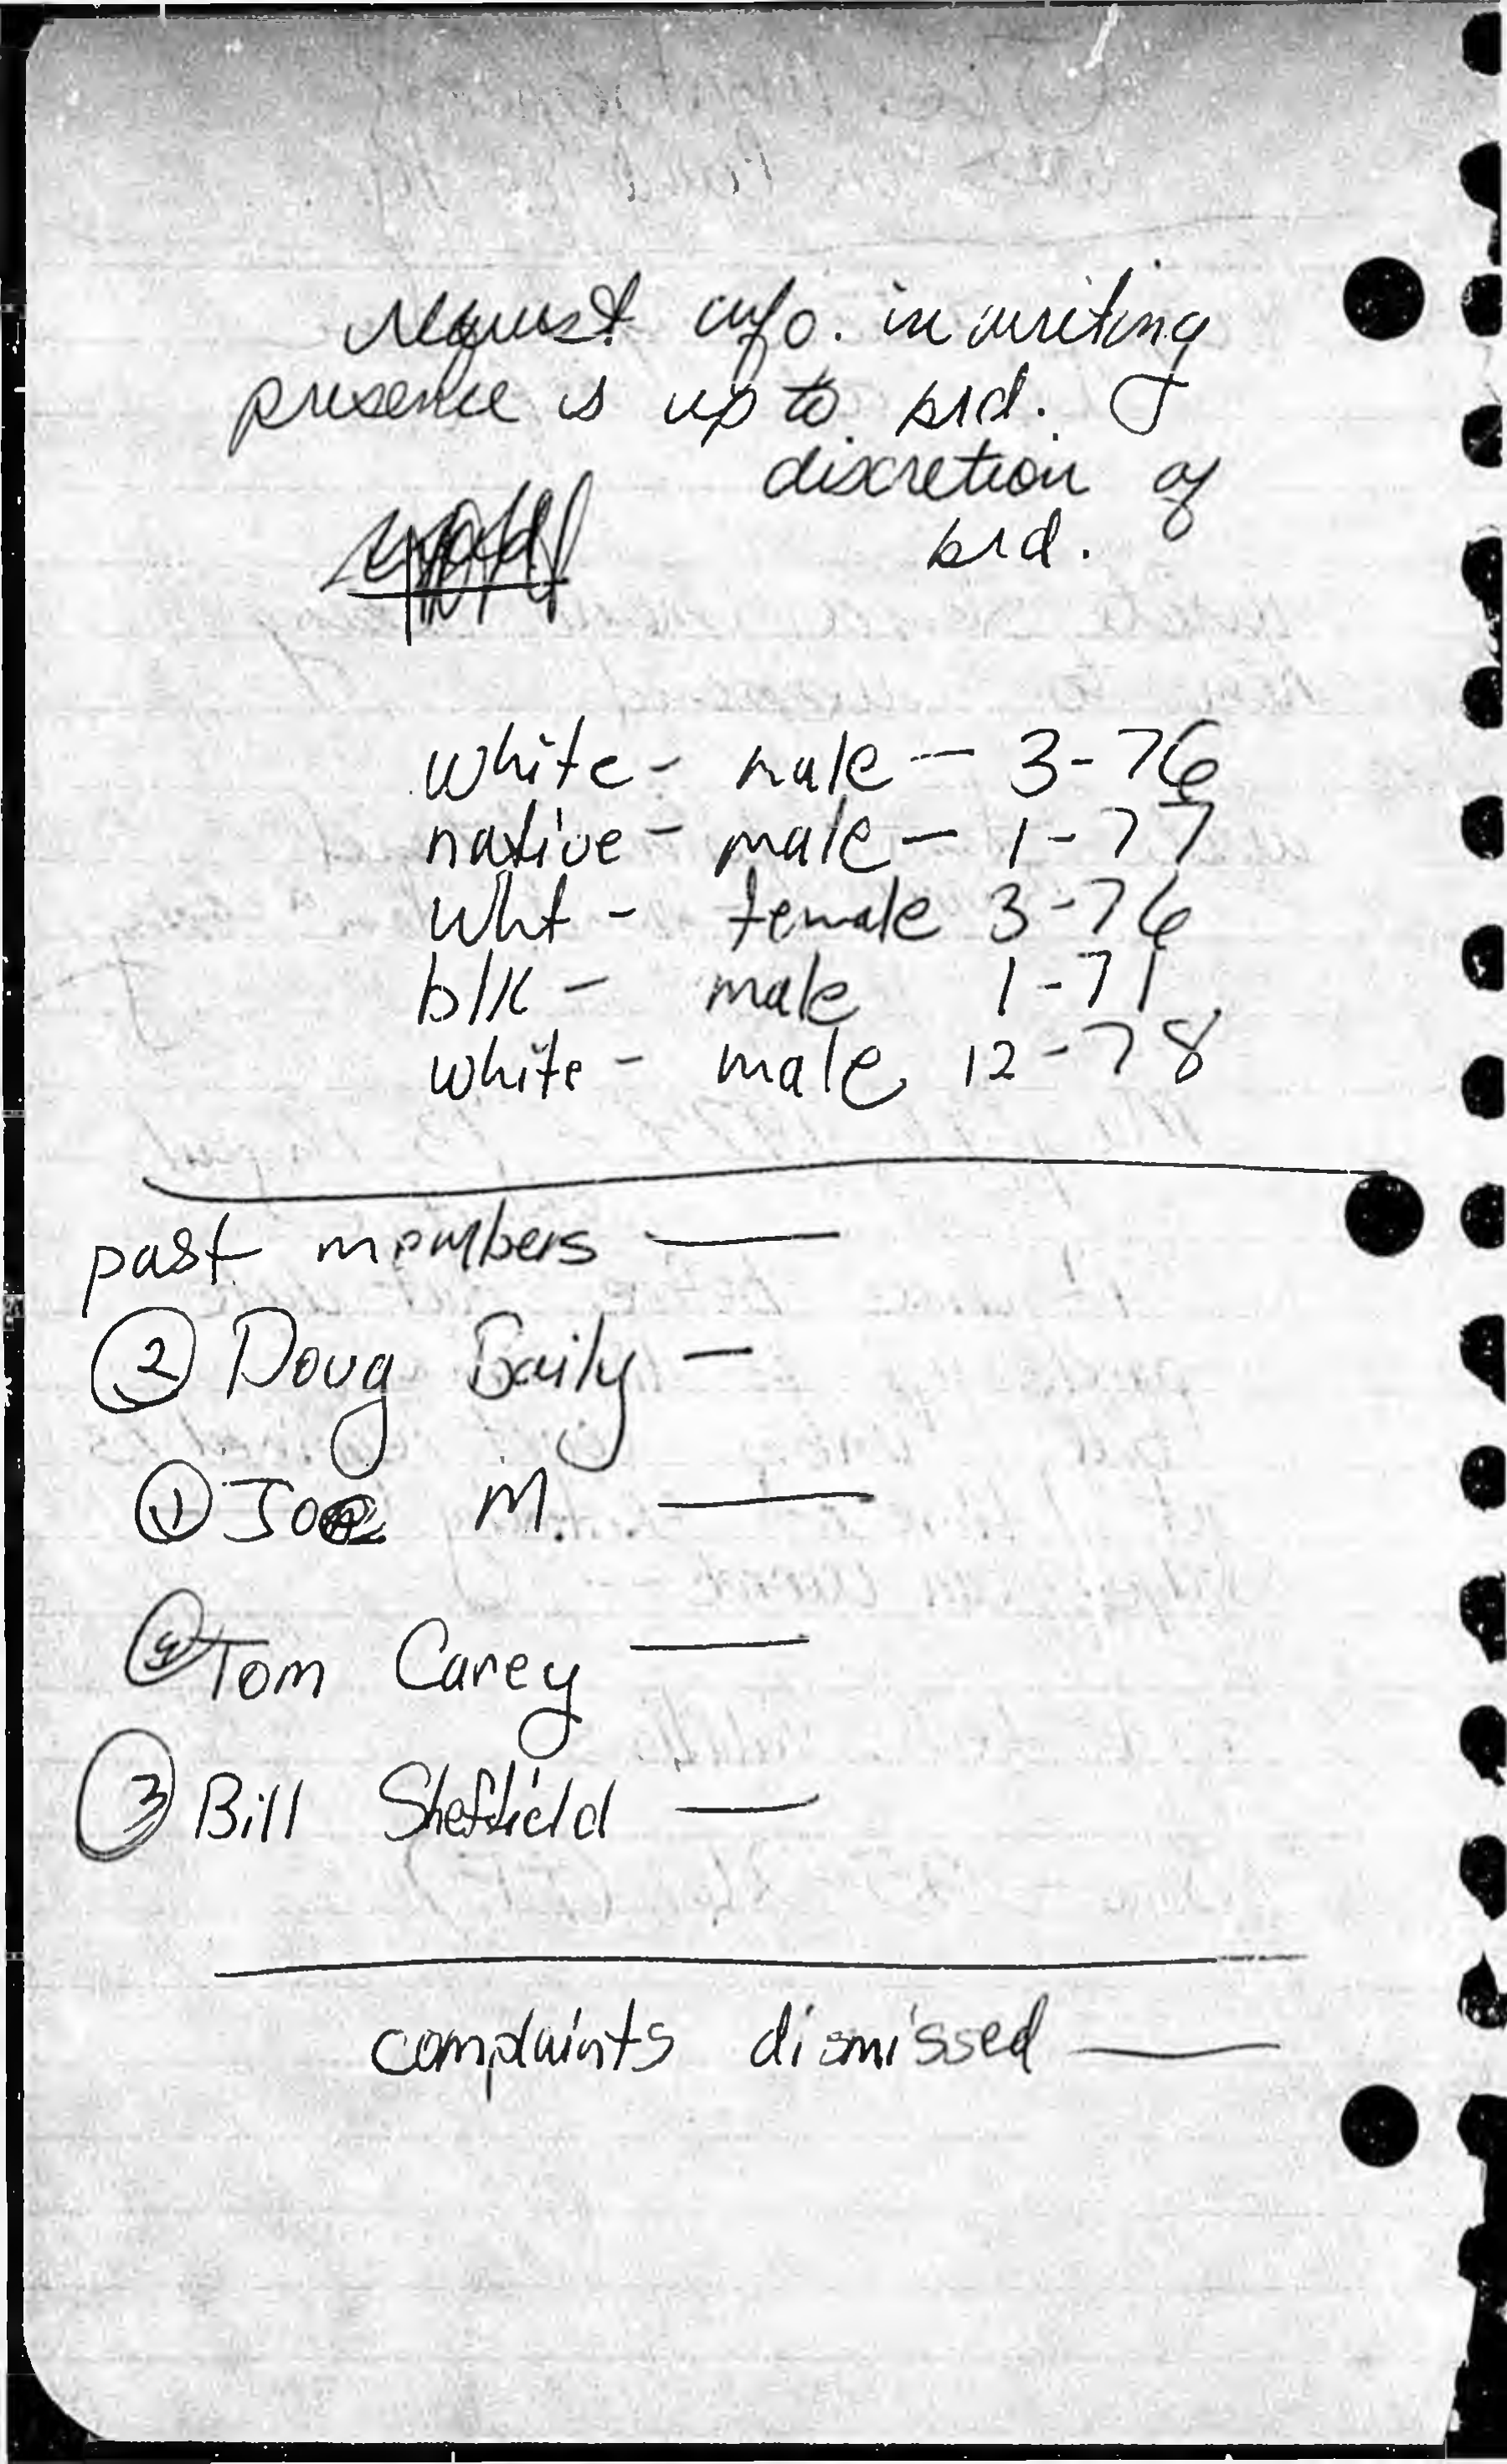 request info. in writing
presence is up to brd.
discretion of
brd.
white - male - 3-76
native - male - 1-77
wht - female 3-76
blk - male 1-71
white - male 12-78
past members —
② Doug Baily —
① Joe M. —
④ Tom Carey —
③ Bill Sheffield —
complaints dismissed —